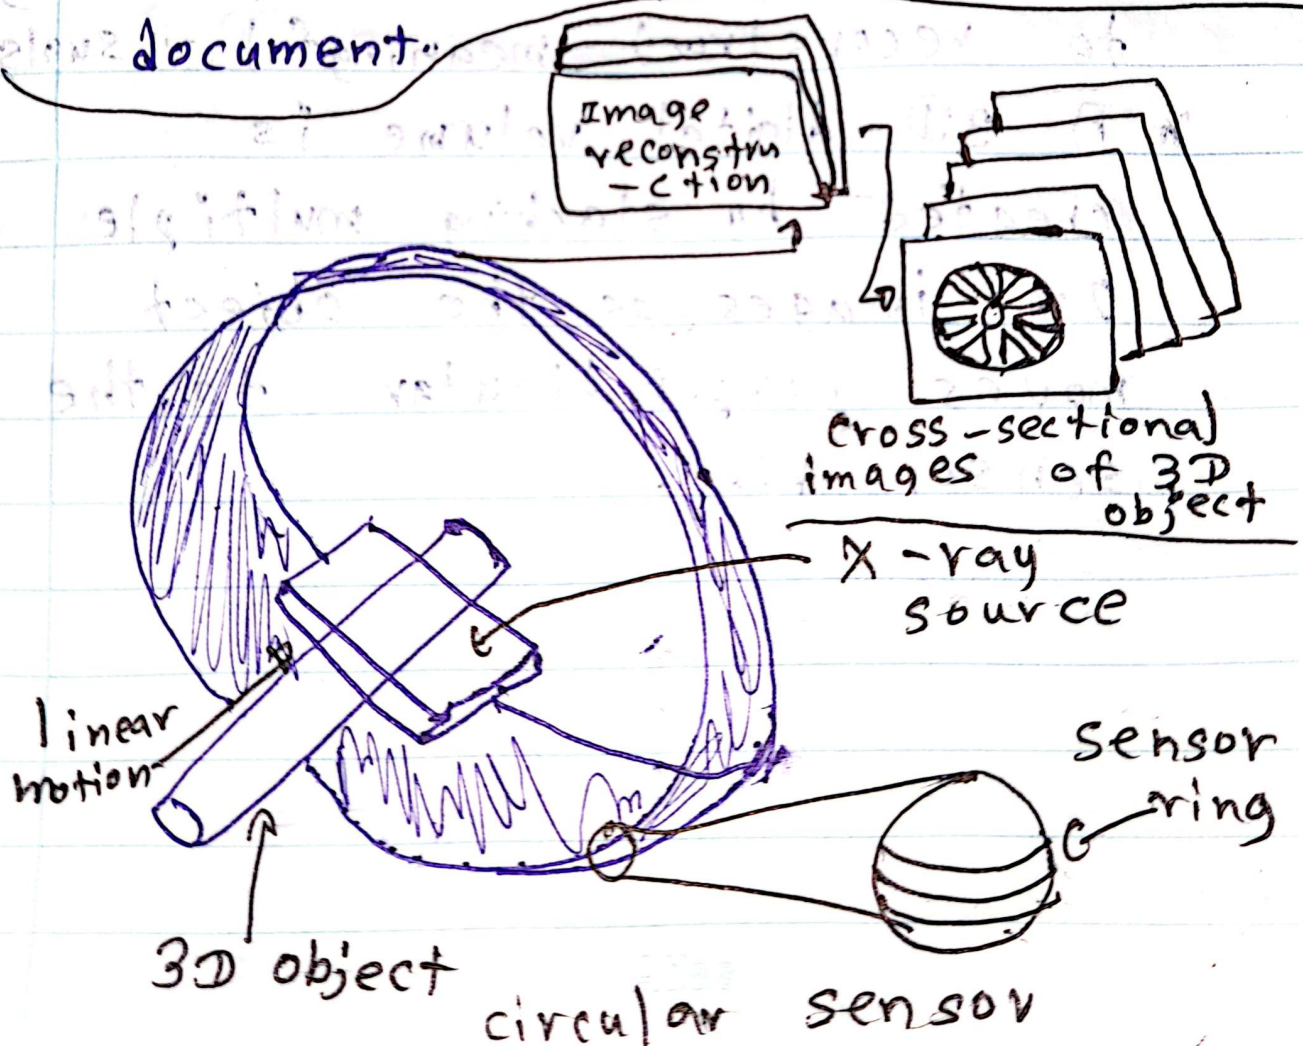 document.
Image
reconstru
-ction
cross-sectional
images of 3D
object
X-ray
source
linear
motion
sensor
ring
3D object
circular sensor